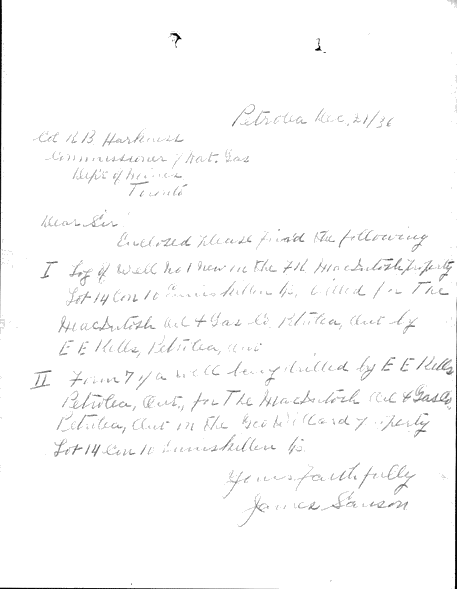 Petrolia Dec, 21/36
Col R B. Harkness
Commissioner of Nat. Gas
Dept of Mines
Toronto
Dear Sir
Enclosed please find the following
I Log of Well No 1 New in the MacIntosh property
Lot 14 Con 10 Enniskillen Tp. drilled for The
MacIntosh Oil & Gas Co, Petrolea, Ont by
E E Kells, Petrolea, Ont
II Form 7 of a well being drilled by E E Kells
Petrolea, Ont, for The MacIntosh Oil & Gas Co,
Petrolea, Ont in the Geo Willard property
Lot 14 Con 10 Enniskillen Tp.
Yours faithfully
James Sanson